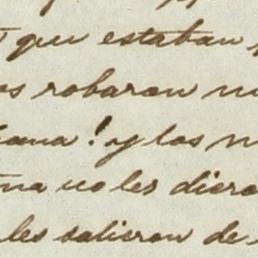 que estaban
os robaron
ana! y los
na no les diero
les salieron de